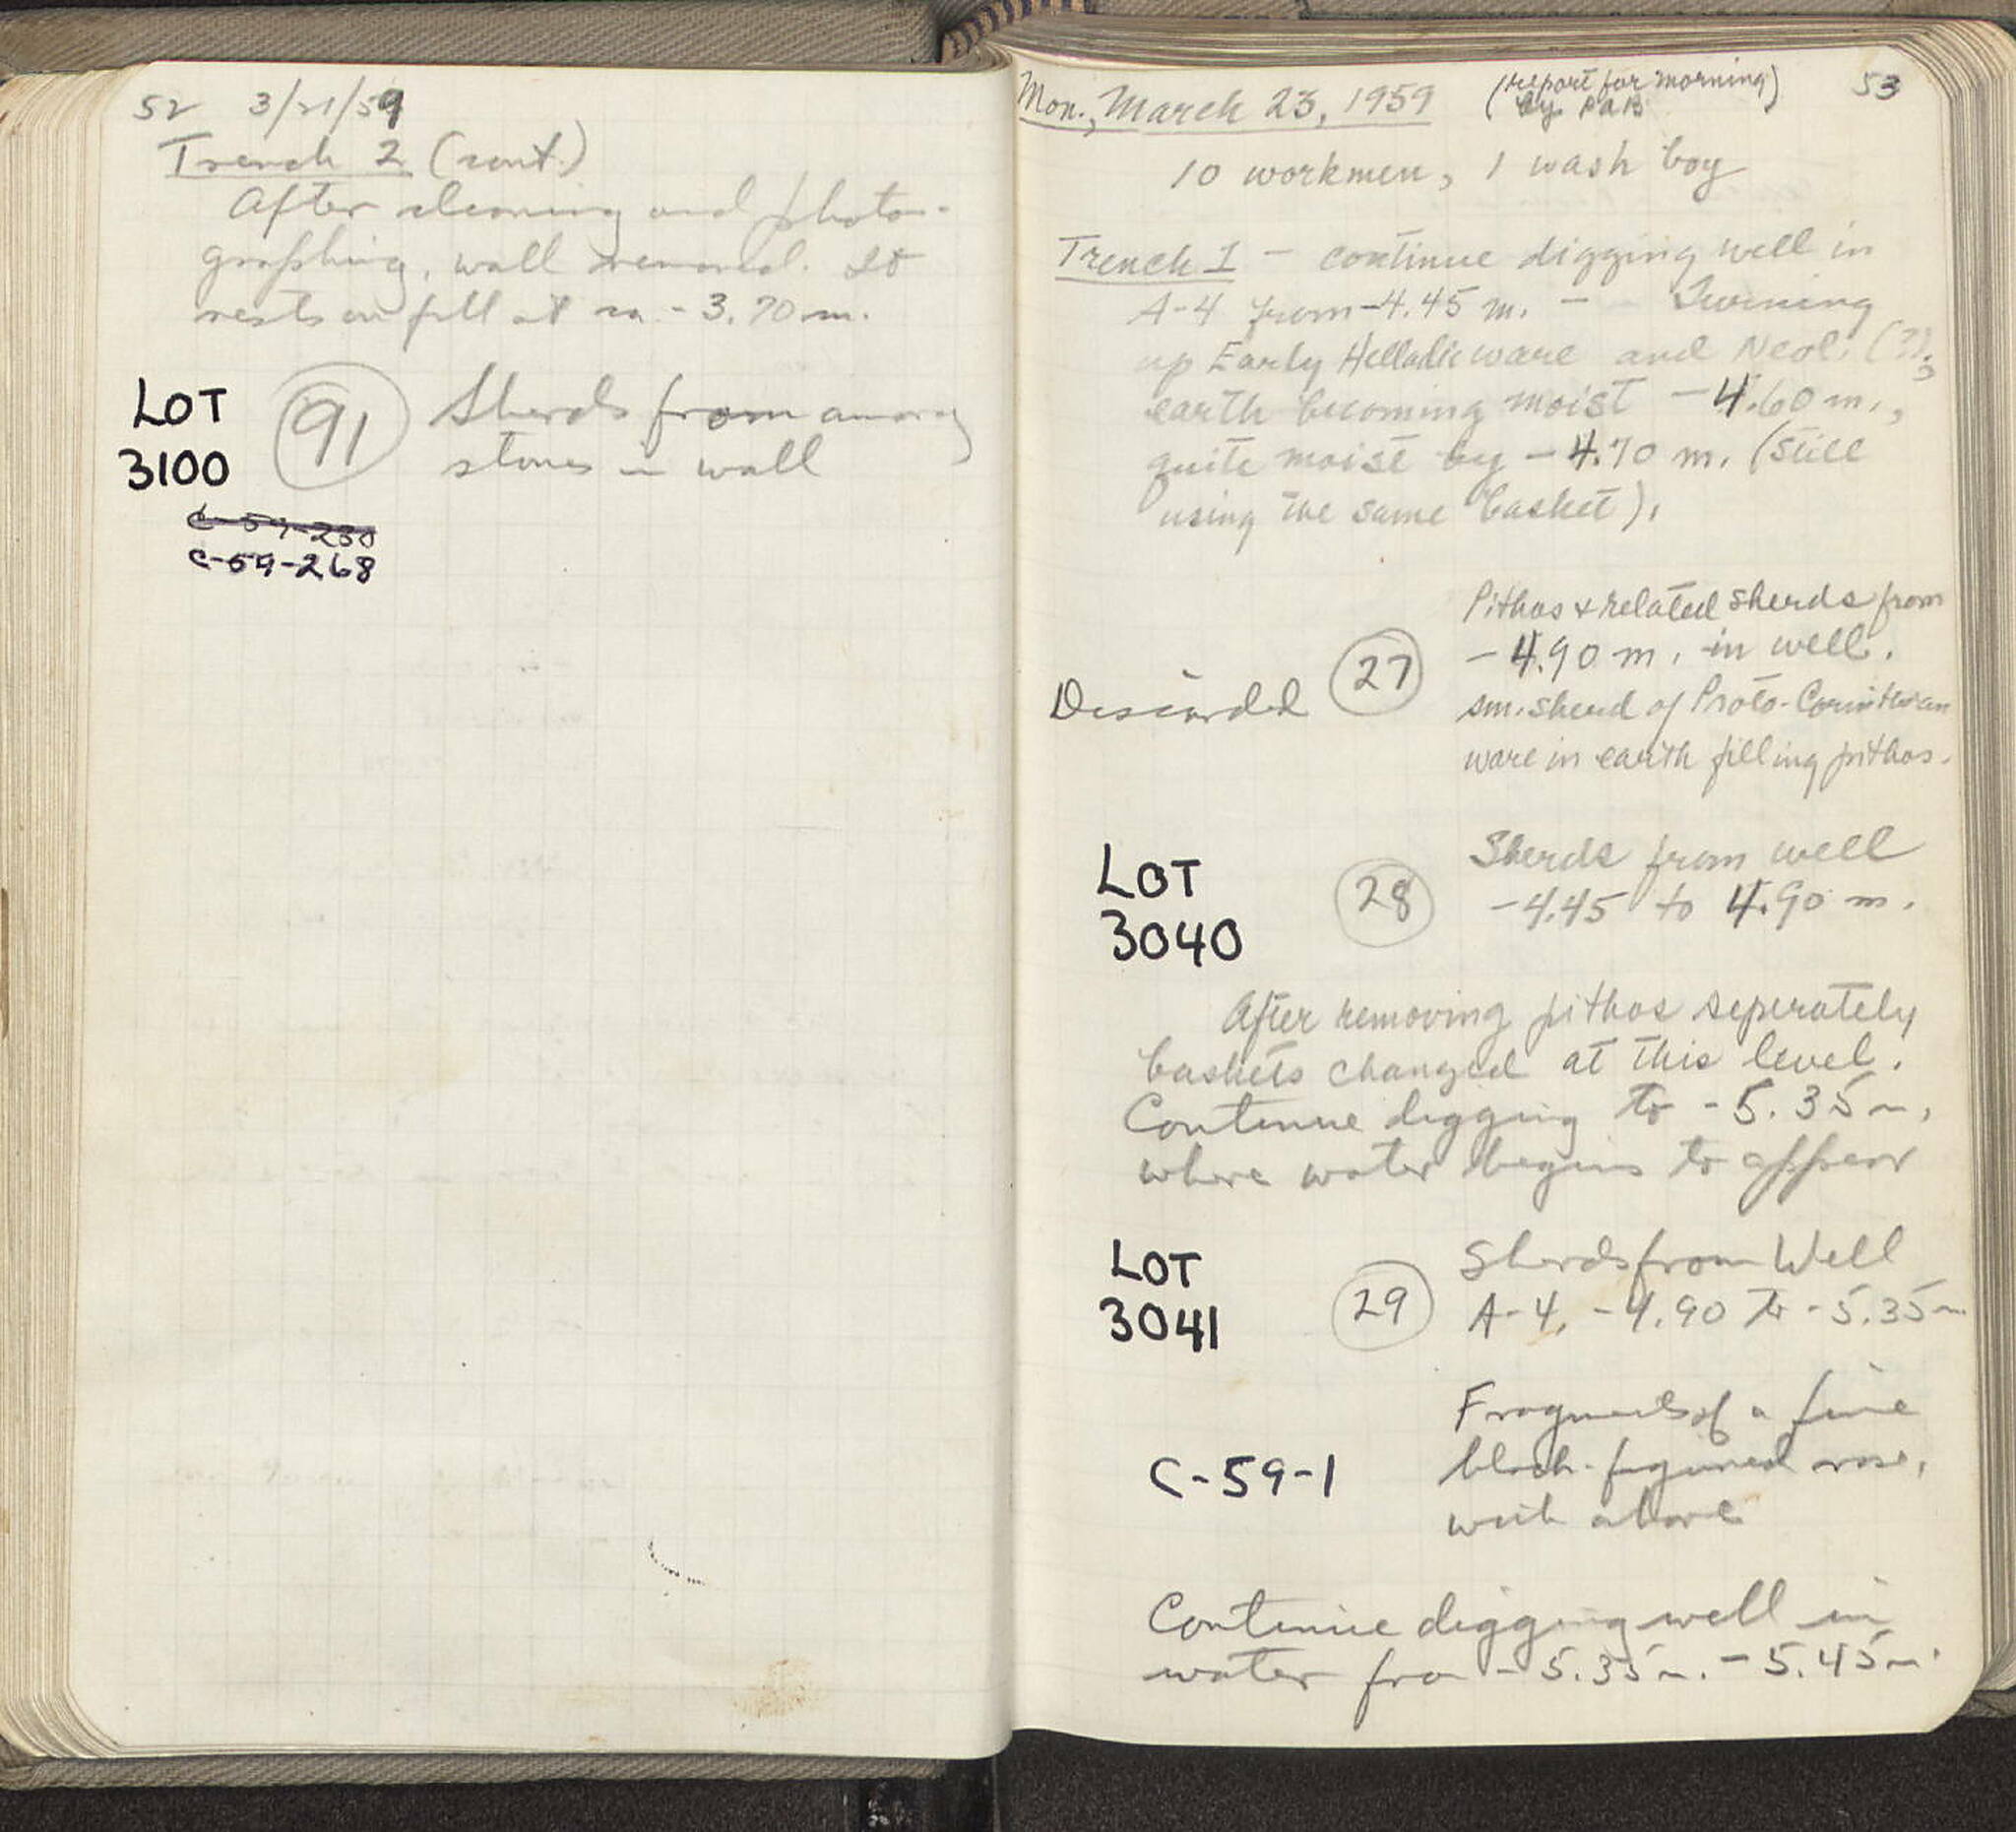 52 3/21/59
Trench 2 (cont.)
After cleaning and photo-
graphing, wall removed. It
rests on fill at ca. -3.70 m.
LOT 91 Sherds from among
3100 stones in wall
C-59-230
C-59-268
Mon., March 23, 1959 (report for morning) 53
by PAB
10 workmen, 1 wash boy
Trench 1 - continue digging well in
A-4 from -4.45 m. - Turning
up Early Helladic ware and Neol. (?);
earth becoming moist -4.60 m.,
quite moist by -4.70 m. (still
using the same basket).
Pithos & related sherds from
Discarded 27 -4.90 m. in well.
sm. sherd of Proto-Corinthian
ware in earth filling pithos.
LOT 28 Sherds from well
3040 -4.45 to 4.90 m.
After removing pithos seperately
baskets changed at this level.
Continue digging to -5.35 m,
where water begins to appear
LOT 29 Sherds from Well
3041 A-4, -4.90 to -5.35 m
Fragments of a fine
C-59-1 black-figured vase,
with above
Continue digging well in
water fro -5.35 m. -5.45 m.